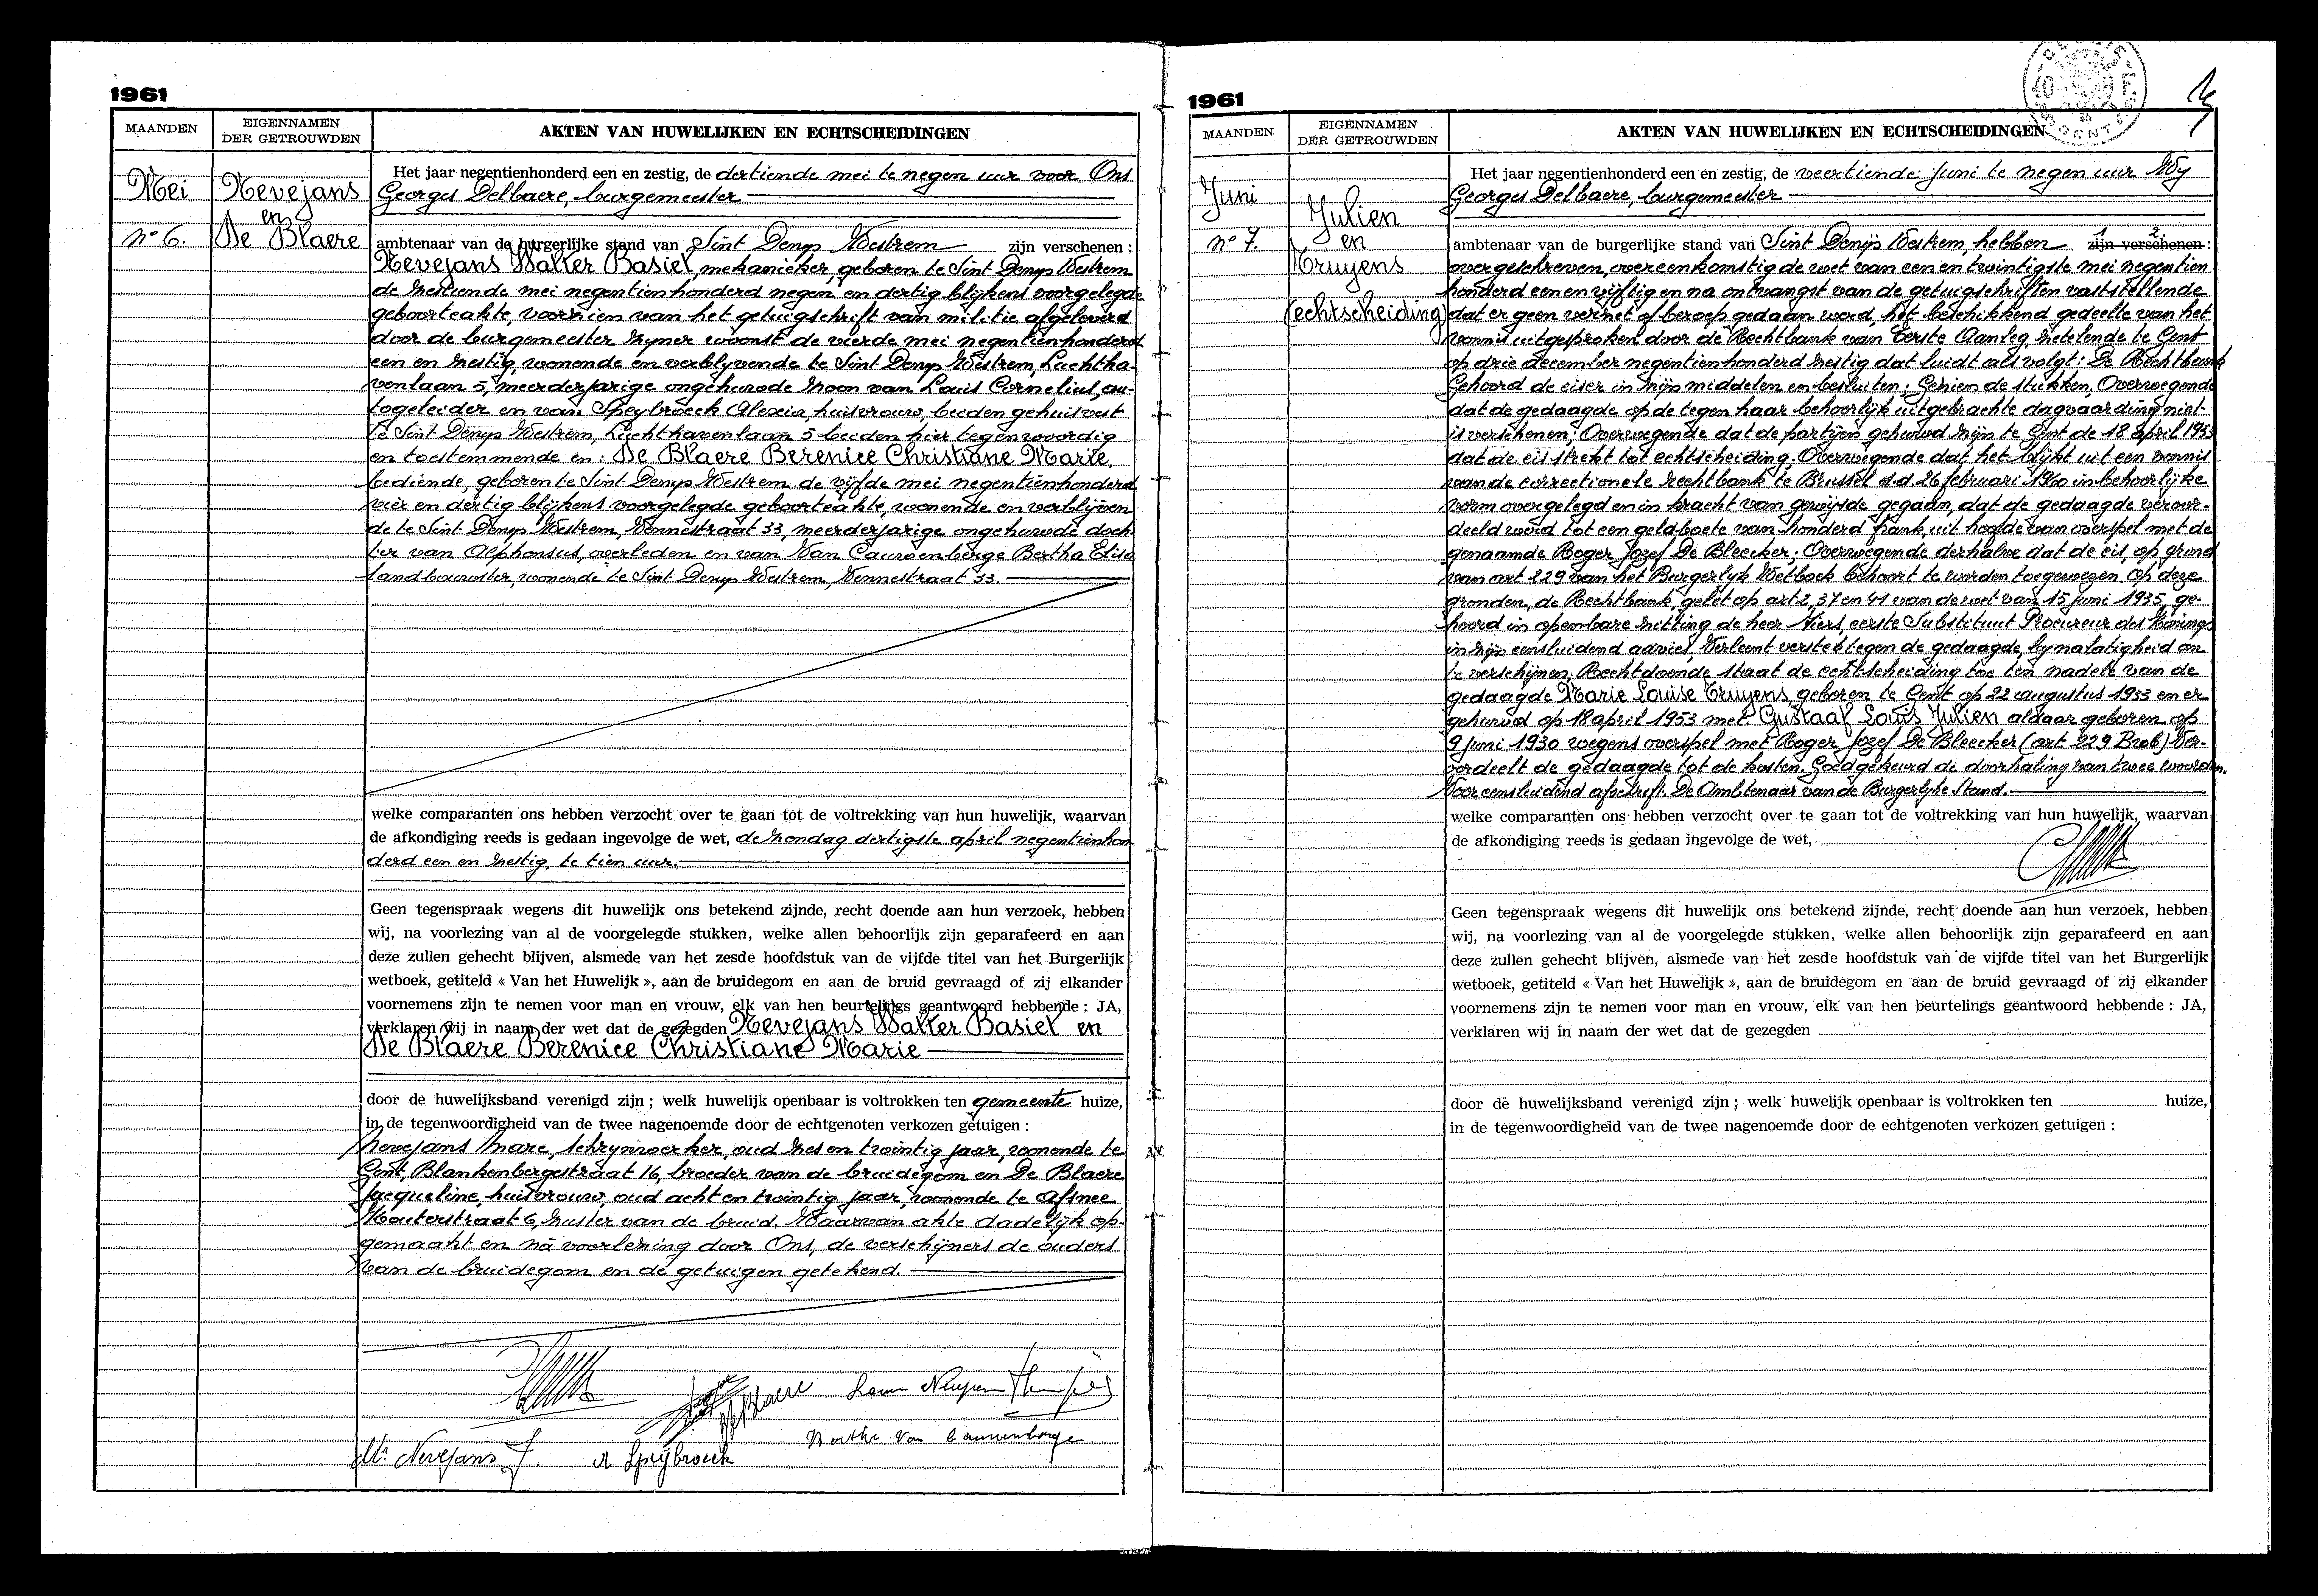 1961
MAANDEN
EIGENNAMEN
DER GETROUWDEN
AKTEN VAN HUWELIJKEN EN ECHTSCHEIDINGEN
Mei
Nevejans
en
De Blaere
n° 6.
Het jaar negentienhonderd een en zestig, de dertiende mei te negen uur voor Ons
Georges Delbaere, burgemeester
ambtenaar van de burgerlijke stand van Sint Denys Westrem zijn verschenen :
Nevejans Walter Basiel, mekanieker, geboren te Sint Denys Westrem
de zestiende mei negentienhonderd negen en dertig blijkens voorgelegde
geboorteakte, voorzien van het getuigschrift van militie afgeleverd
door de burgemeester zyner woonst de vierde mei negentienhonderd
een en zestig, wonende en verblyvende te Sint Denys Westrem, Luchtha-
venlaan 5, meerderjarige ongehuwde zoon van Louis Cornelius, au-
togeleider en van Speybroeck Alexia, huisvrouw, beiden gehuisvest
te Sint Denys Westrem, Luchthavenlaan 5 beiden hier tegenwoordig
en toestemmende en: De Blaere Berenice Christiane Marie,
bediende, geboren te Sint Denys Westrem de vijfde mei negentienhonderd
vier en dertig blijkens voorgelegde geboorteakte, wonende en verblijven
de te Sint Denys Westrem, Vennestraat 33, meerderjarige ongehuwde doch
ter van Alphonsus, overleden en van Van Cauwenberge Bertha Elisa
landbouwster, wonende te Sint Denys Westrem, Vennestraat 33.
welke comparanten ons hebben verzocht over te gaan tot de voltrekking van hun huwelijk, waarvan
de afkondiging reeds is gedaan ingevolge de wet, de zondag dertigste april negentienhon
derd een en zestig, te tien uur.
Geen tegenspraak wegens dit huwelijk ons betekend zijnde, recht doende aan hun verzoek, hebben
wij, na voorlezing van al de voorgelegde stukken, welke allen behoorlijk zijn geparafeerd en aan
deze zullen gehecht blijven, alsmede van het zesde hoofdstuk van de vijfde titel van het Burgerlijk
wetboek, getiteld « Van het Huwelijk », aan de bruidegom en aan de bruid gevraagd of zij elkander
voornemens zijn te nemen voor man en vrouw, elk van hen beurtelings geantwoord hebbende : JA,
verklaren wij in naam der wet dat de gezegden Nevejans Walter Basiel en
De Blaere Berenice Christiane Marie
door de huwelijksband verenigd zijn ; welk huwelijk openbaar is voltrokken ten gemeente huize,
in de tegenwoordigheid van de twee nagenoemde door de echtgenoten verkozen getuigen :
Nevejans Marc, schrynwerker, oud zes en twintig jaar, wonende te
Gent, Blankenbergestraat 16, broeder van de bruidegom en De Blaere
Jacqueline, huisvrouw, oud acht en twintig jaar, wonende te Afsnee
Kouterstraat 6, zuster van de bruid. Waarvan akte dadelijk op-
gemaakt en na voorlezing door Ons, de verschijners de ouders
van de bruidegom en de getuigen getekend.
De Blaere
Bertha Van Cauwenberge
M. Nevejans
A Speybroeck
1961
MAANDEN
EIGENNAMEN
DER GETROUWDEN
AKTEN VAN HUWELIJKEN EN ECHTSCHEIDINGEN
Juni
n° 7.
Julien
en
Truyens
(echtscheiding)
Het jaar negentienhonderd een en zestig, de veertiende juni te negen uur Wy
Georges Delbaere, burgemeester
ambtenaar van de burgerlijke stand van Sint Denijs Westrem, hebben 1 2 zijn verschenen :
overgeschreven, overeenkomstig de wet van een en twintigste mei negentien
honderd een en vijftig en na ontvangst van de getuigschriften vaststellende
dat er geen verzet of beroep gedaan werd, het beschikkend gedeelte van het
vonnis uitgesproken door de Rechtbank van Eerste Aanleg, zetelende te Gent
op drie december negentienhonderd zestig dat luidt als volgt: De Rechtbank
Gehoord de eiser in zijn middelen en besluiten; Gezien de stukken, Overwegende
dat de gedaagde op de tegen haar behoorlijk uitgebrachte dagvaarding niet
is verschenen; Overwegende dat de partijen gehuwd zijn te Gent de 18 april 1953
dat de eis strekt tot echtscheiding; Overwegende dat het blijkt uit een vonnis
van de correctionele rechtbank te Brussel d.d. 26 februari 1960 in behoorlijke
vorm overgelegd en in kracht van gewijsde gegaan, dat de gedaagde veroor-
deeld werd tot een geldboete van honderd frank, uit hoofde van overspel met de
genaamde Roger Jozef De Bleecker; Overwegende derhalve dat de eis, op grond
van art 229 van het Burgerlyk Wetboek behoort te worden toegewezen. Op deze
gronden, de Rechtbank, gelet op art 2, 37 en 41 van de wet van 15 juni 1935, ge-
hoord in openbare zitting de heer Niers, eerste Substituut Procureur des Konings
in zijn eensluidend advies, Verleent verstek tegen de gedaagde, by nalatigheid om
te verschijnen. Rechtdoende staat de echtscheiding toe ten nadele van de
gedaagde Marie Louise Truyens, geboren te Gent op 22 augustus 1933 en er
gehuwd op 18 april 1953 met Gustaaf Louis Julien aldaar geboren op
9 juni 1930 wegens overspel met Roger Jozef De Bleecker (art 229 Bwb) Ver-
oordeelt de gedaagde tot de kosten. Goedgekeurd de doorhaling van twee woorden.
Voor eensluidend afschrift. De Ambtenaar van de Burgerlyke Stand.
welke comparanten ons hebben verzocht over te gaan tot de voltrekking van hun huwelijk, waarvan
de afkondiging reeds is gedaan ingevolge de wet,
Geen tegenspraak wegens dit huwelijk ons betekend zijnde, recht doende aan hun verzoek, hebben
wij, na voorlezing van al de voorgelegde stukken, welke allen behoorlijk zijn geparafeerd en aan
deze zullen gehecht blijven, alsmede van het zesde hoofdstuk van de vijfde titel van het Burgerlijk
wetboek, getiteld « Van het Huwelijk », aan de bruidegom en aan de bruid gevraagd of zij elkander
voornemens zijn te nemen voor man en vrouw, elk van hen beurtelings geantwoord hebbende : JA,
verklaren wij in naam der wet dat de gezegden
door de huwelijksband verenigd zijn ; welk huwelijk openbaar is voltrokken ten huize,
in de tegenwoordigheid van de twee nagenoemde door de echtgenoten verkozen getuigen :